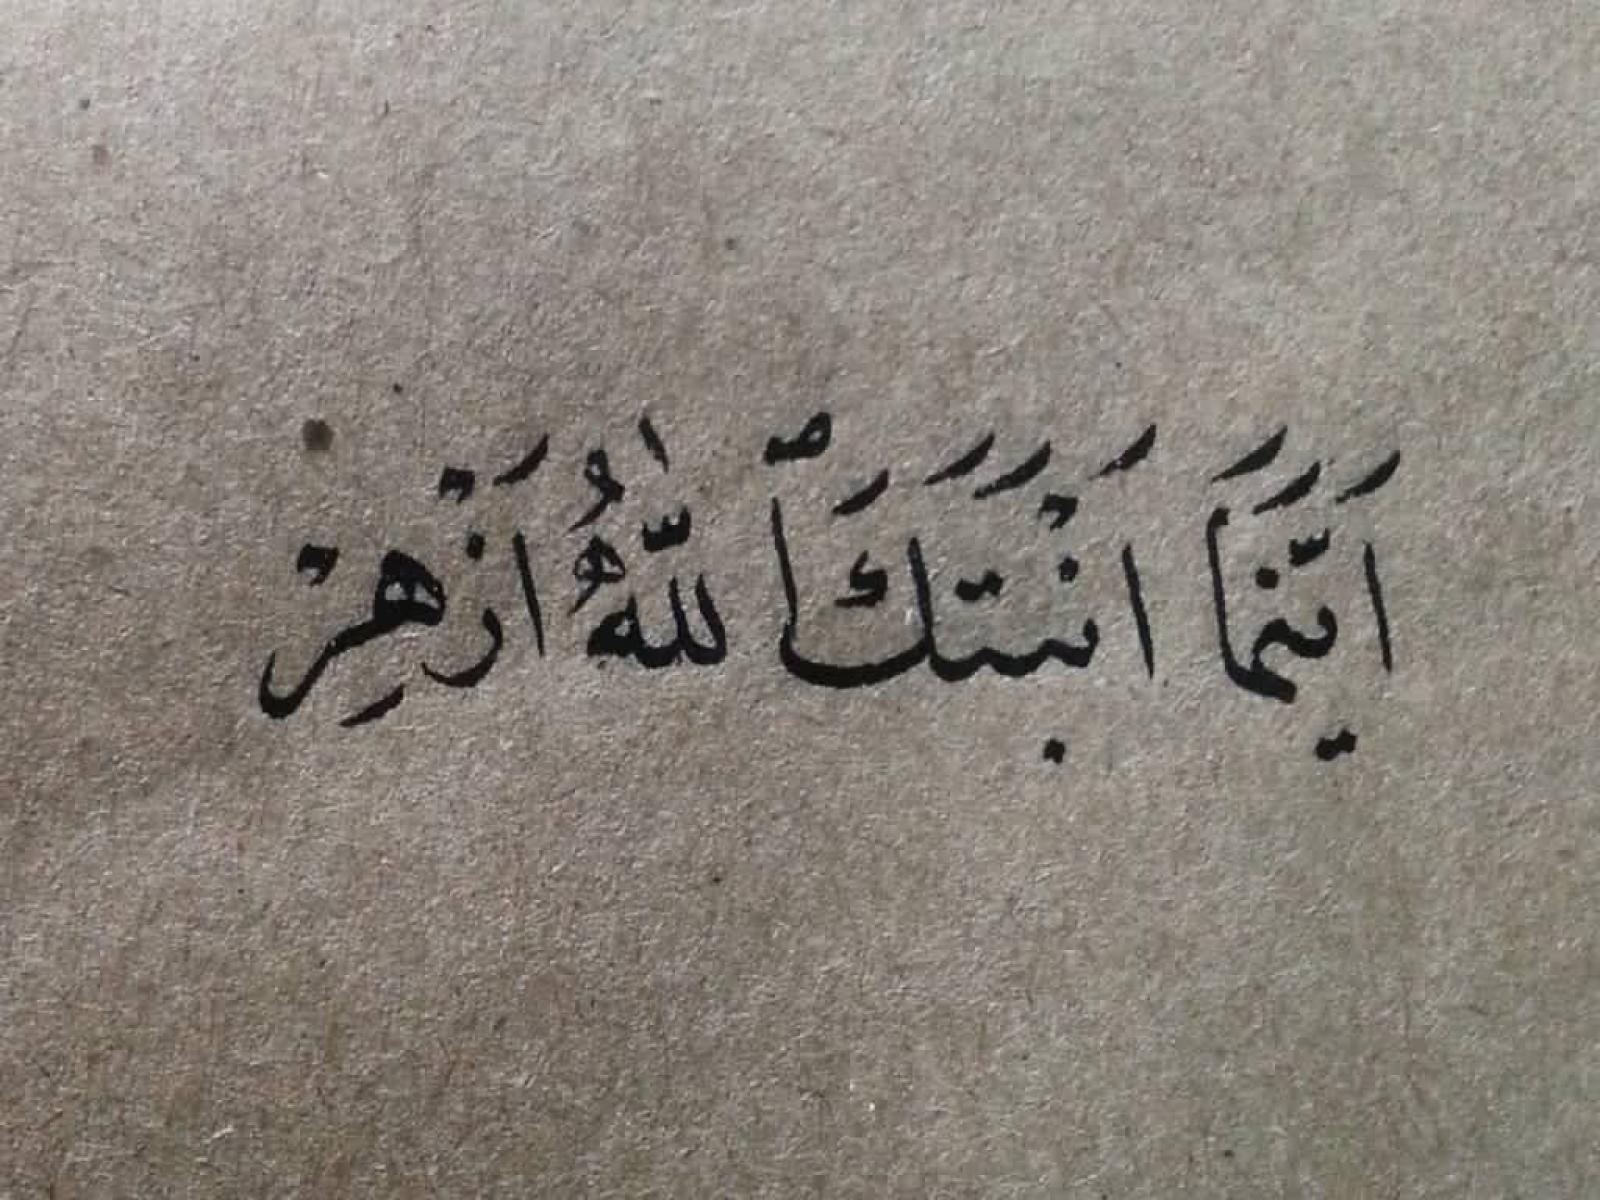 اَيَّنَمَا اَنْبَتَكَ ٱللّٰهُ اَزْهِرْ